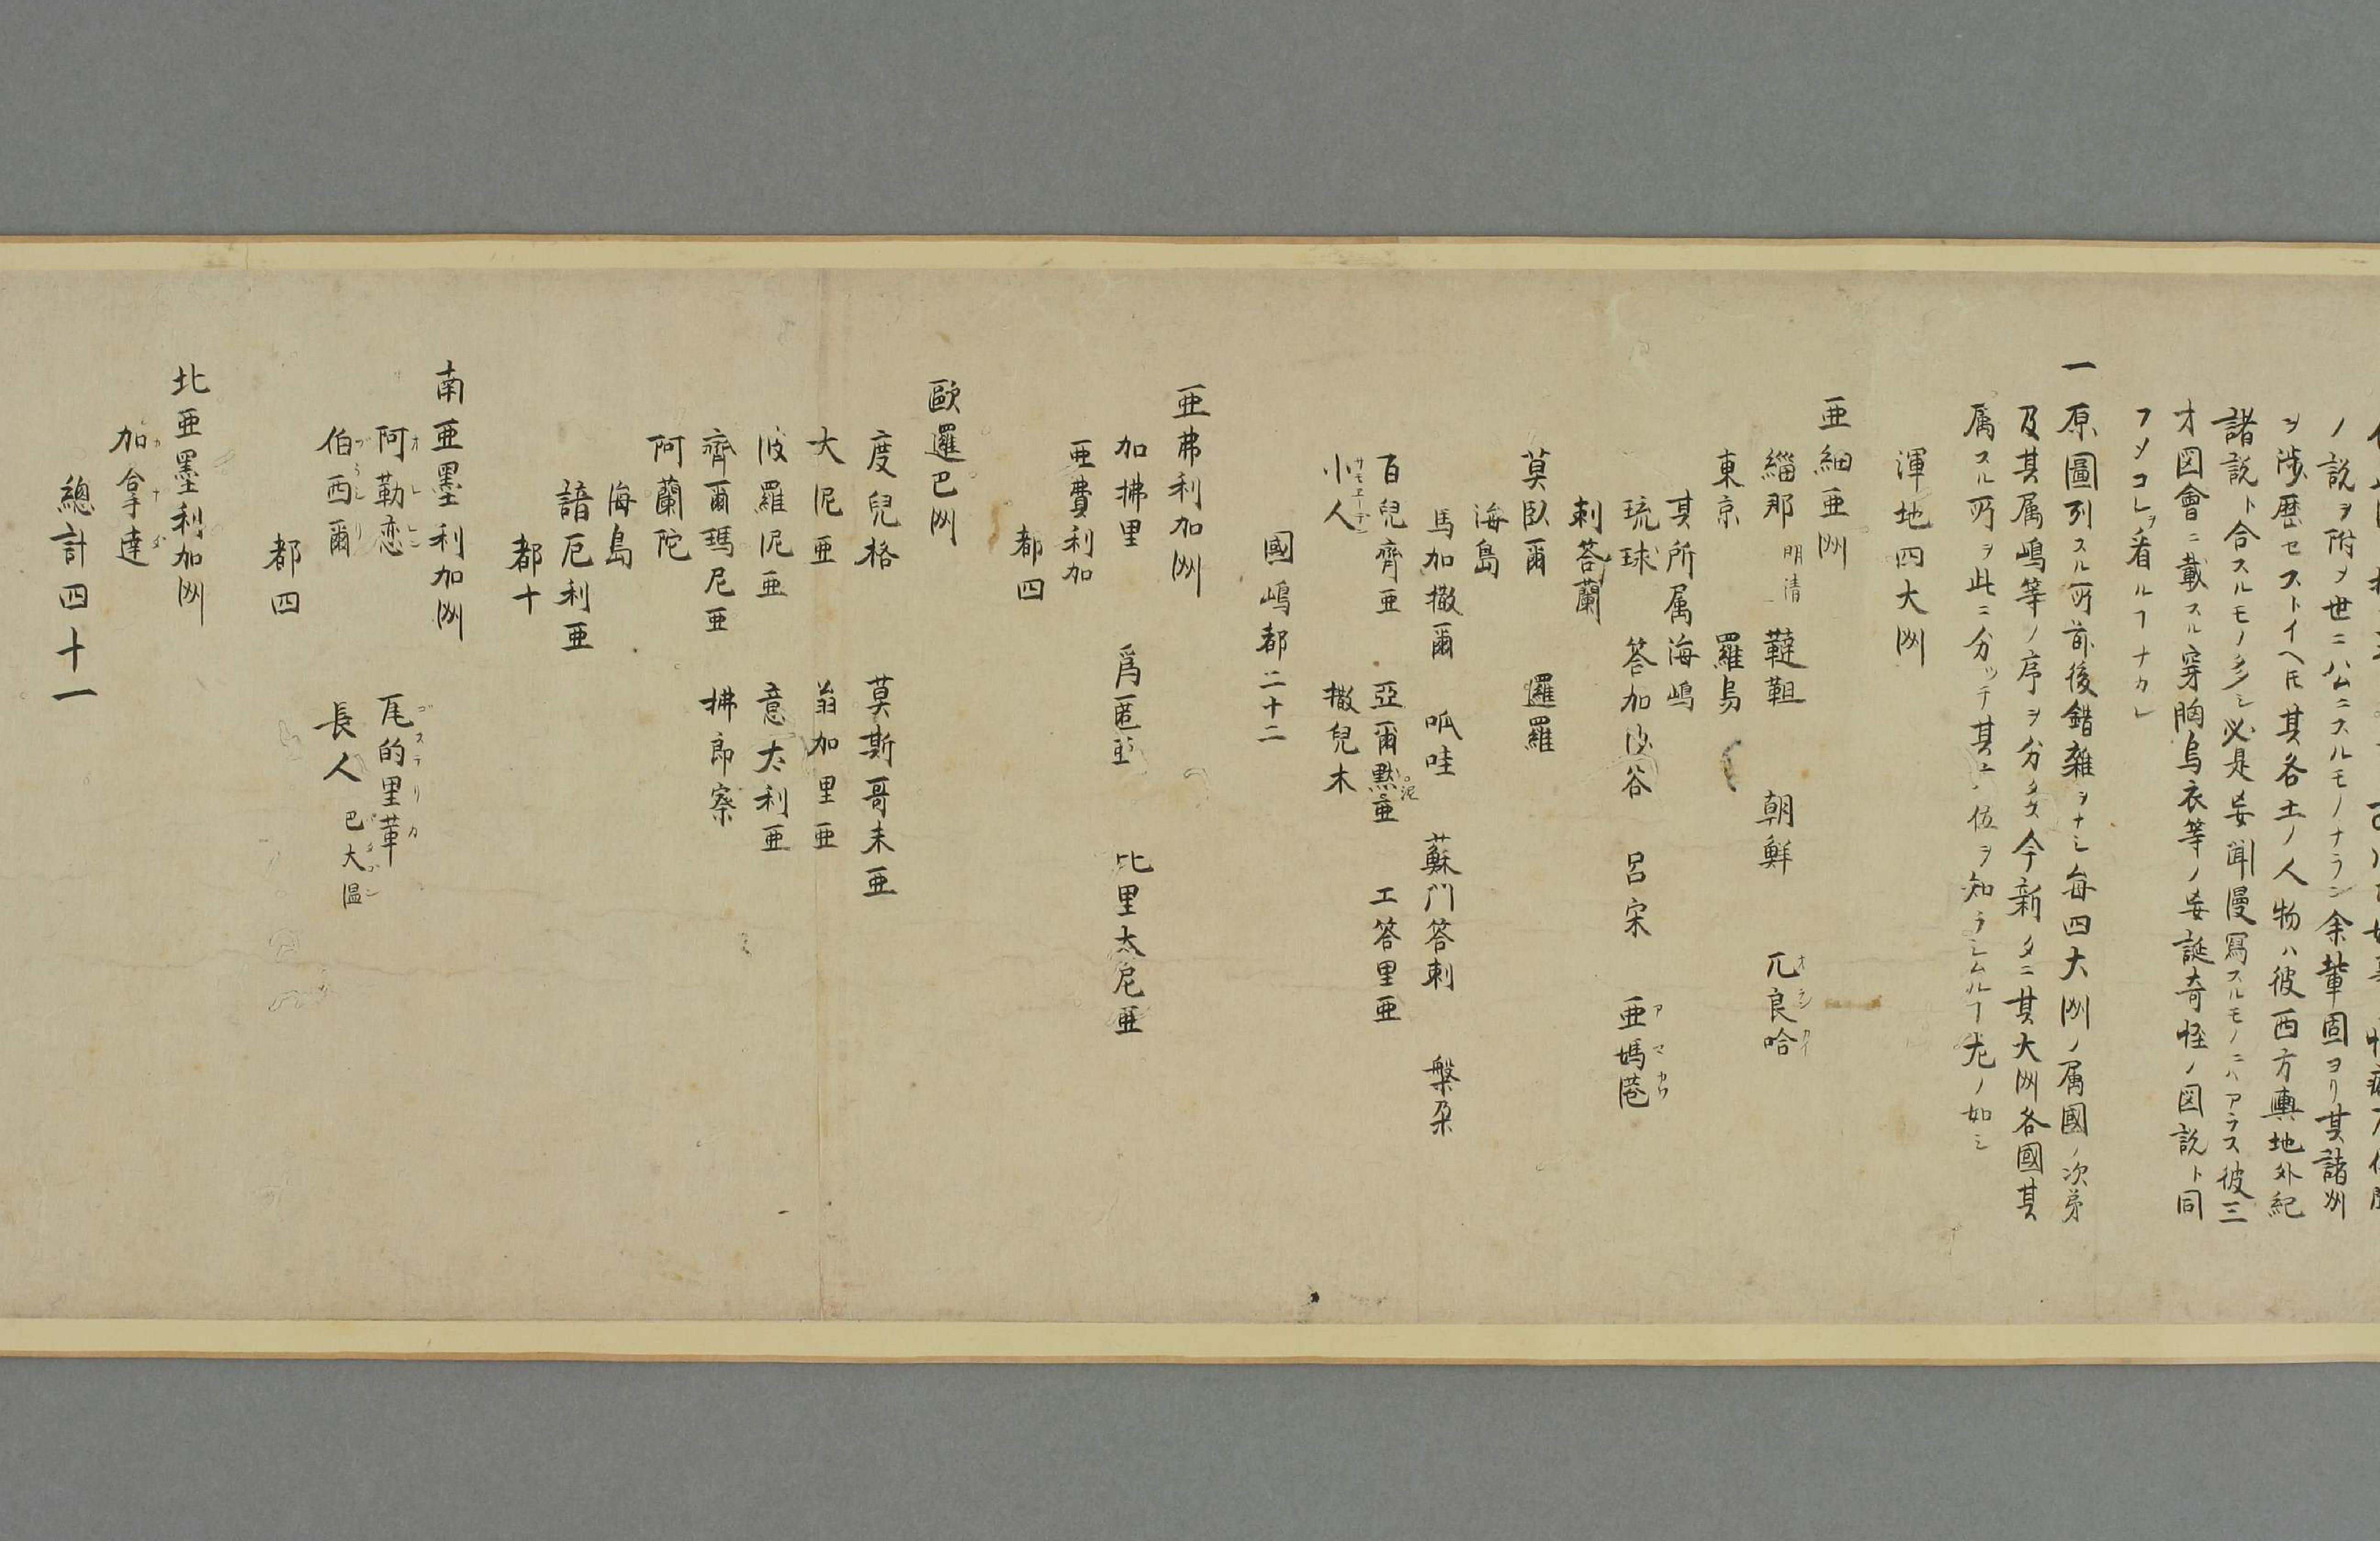 ノ説ヲ附ノ世ニ公ニスルモノナラン余輩固ヨリ其諸州
ヲ渉歴セストイヘ𪜈其各土ノ人物ハ彼西方輿地外紀
諸説ト合スルモノ多シ必是妄聞漫寫スルモノニハアラス彼三
才図會ニ載スル穿胸烏衣等ノ妄誕奇怪ノ図説ト同
フソコレヲ看ルヿナカレ
一原圖列スル所前後錯雜ヲナシ毎四大洲ノ属國ノ次第
及其属嶋等ノ序ヲ分タス今新タニ其大洲各國其
属スル所ヲ此ニ分ッテ其土位ヲ知ラシムルヿ尤ノ如シ
渾地四大洲
亜細亜洲
緇那 明清 韃靼 朝鮮 兀良哈 オランカイ
東京 羅烏
其所属海嶋
琉球 答加沙谷 呂宋 亜媽港 アマカワ
刺答蘭
莫臥爾 暹羅
海島
馬加撒爾 呱哇 蘇門答刺 槃朶
百兒齊亜 亞爾黙亜 泥 工答里亜
小人 サモエーデン 撒兒木
國嶋都二十二
亜弗利加洲
加拂里 爲匿亜 比里太尼亜
亜費利加
都四
歐邏巴洲
度兒格 莫斯哥未亜
大泥亜 翁加里亜
波羅泥亜 意太利亜
齊爾瑪尼亜 拂郎察
阿蘭陀
海島
諳厄利亜
都十
南亜墨利加洲
阿勒恋 オレレン 瓦的里革 ゴステリカ
伯西爾 ブラシリ 長人 巴大温 パタゴン
都四
北亜墨利加洲
加拿達 カナダ
總計四十一